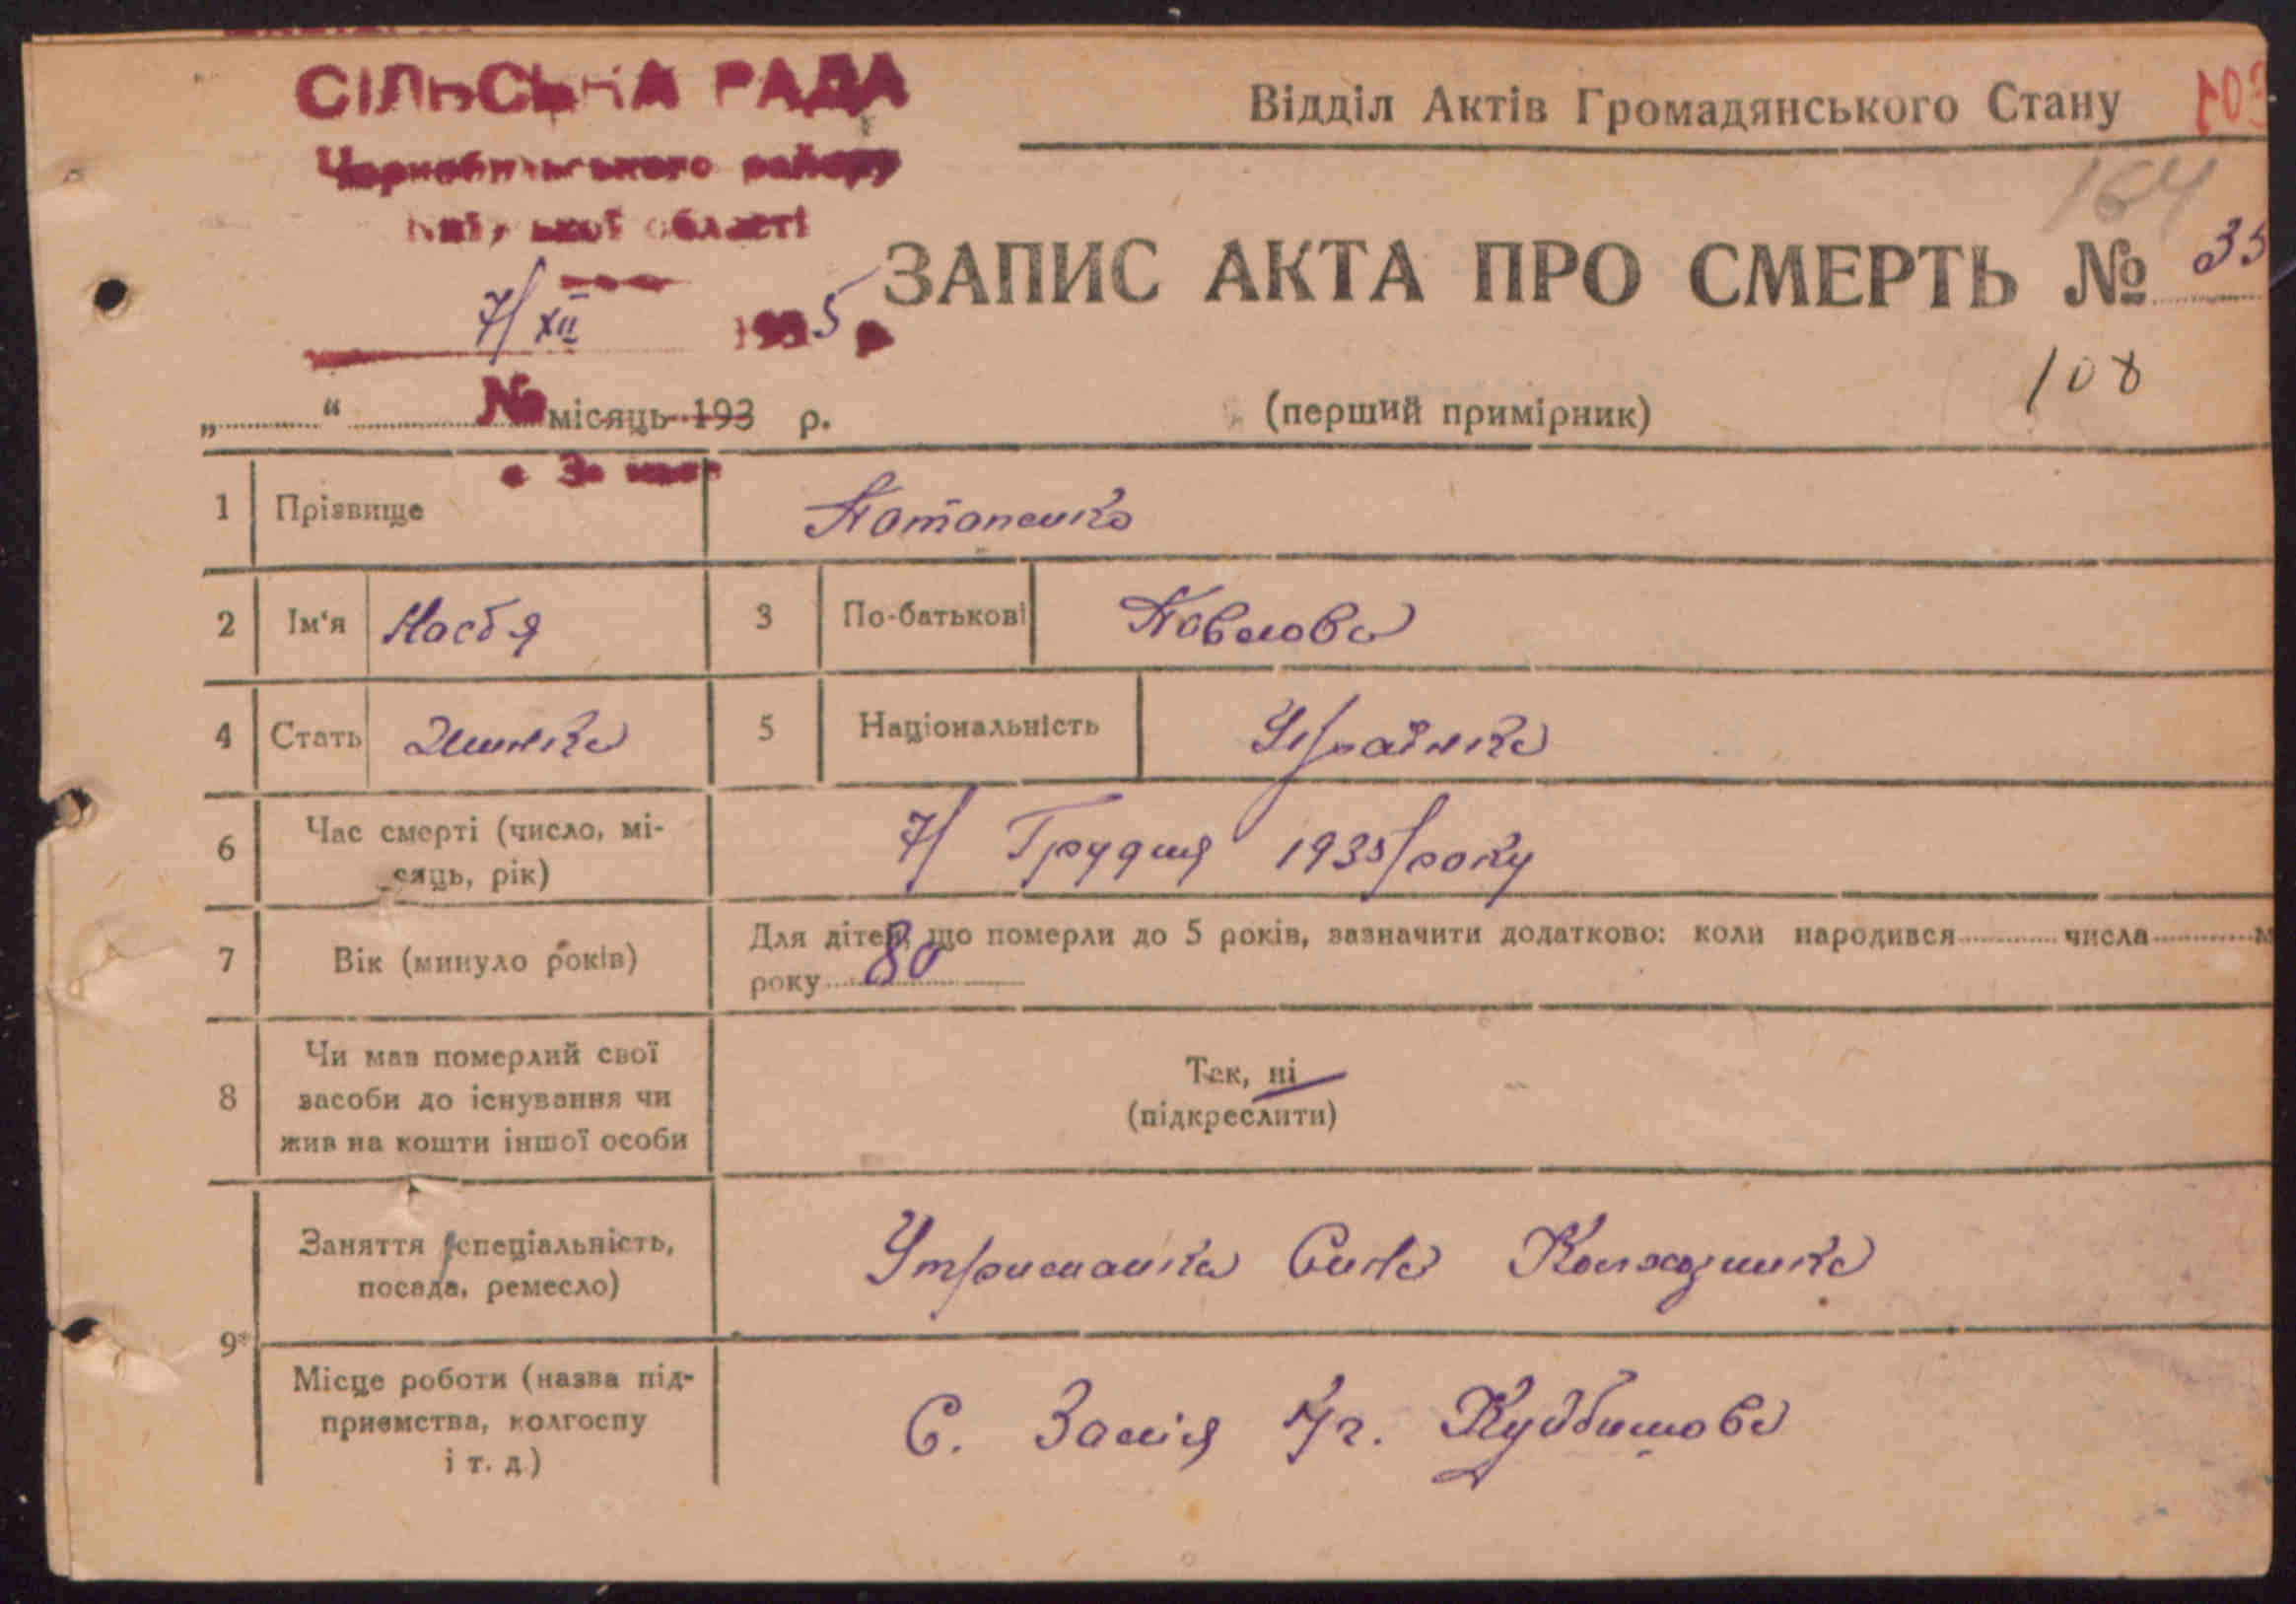 СІЛЬСЬКА РАДА
Відділ Актів Громадянського Стану
103
Чорнобильського району
164
Київської області
ЗАПИС АКТА ПРО СМЕРТЬ № 35
7/XII 1935 р.
108
„ “ № місяць 193 р.
(перший примірник)
1 Прізвище Потапенко
2 Ім'я Настя 3 По-батькові Павлова
4 Стать Жинка 5 Національність Українка
6 Час смерті (число, мі-
сяць, рік)
7/ Грудня 1935/року
7 Вік (минуло років)
Для дітей, що померли до 5 років, зазначити додатково: коли народився числа м
року 80
8 Чи мав померлий свої
засоби до існування чи
жив на кошти іншої особи
Так, ні
(підкреслити)
9*
Заняття (спеціальність,
посада, ремесло)
Утриманка Сина Колгоспника
Місце роботи (назва під-
приємства, колгоспу
і т. д.)
С. К/г. Куйбишова